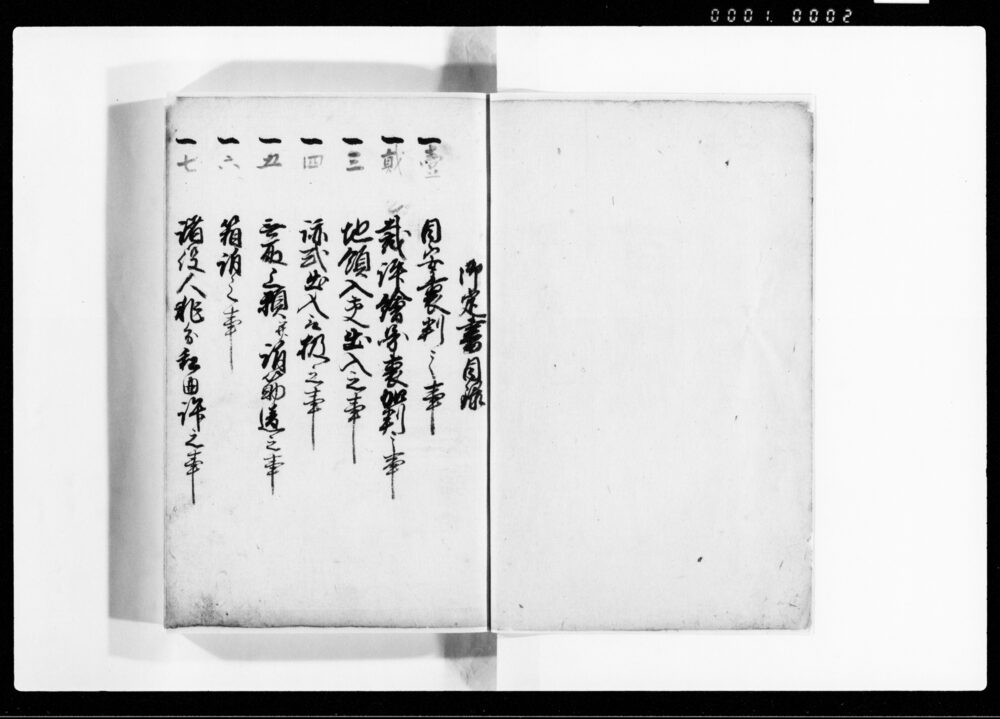 0001. 0002
御定書目録
一壹 目安裏判之事
一貳 裁許繪図裏加判之事
一三 地頭入交出入之事
一四 跡式出入扱之事
一五 無取之類并訴筋違之事
一六 箱訴之事
一七 諸役人非分私曲訴之事